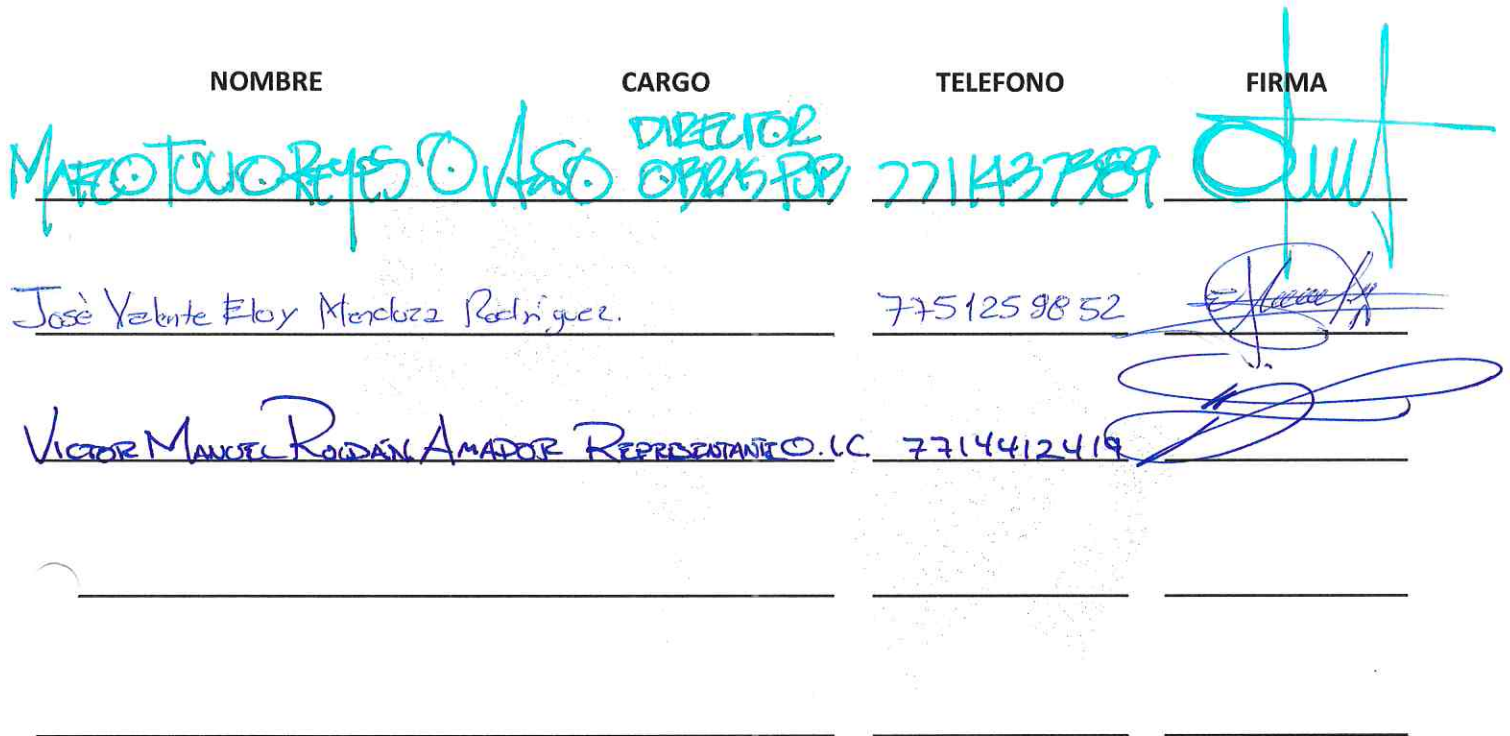 NOMBRE CARGO TELEFONO FIRMA
DIRECTOR
MARCO TULIO REYES OBRAS PUB 7711437389
José Valente Eloy Mendoza Rodríguez. 7751259852
VICTOR MANUEL ROLDÁN AMADOR REPRESENTANTE O.I.C. 7714412419